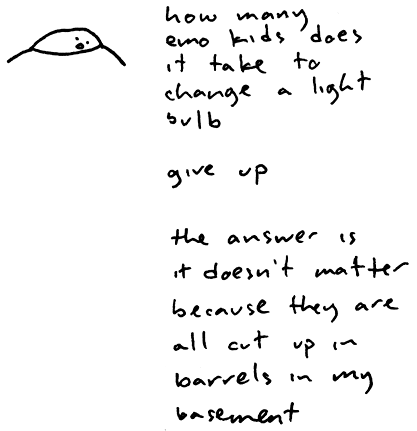 how many
emo kids does
it take to
change a light
bulb
give up
the answer is
it doesn't matter
because they are
all cut up in
barrels in my
basement